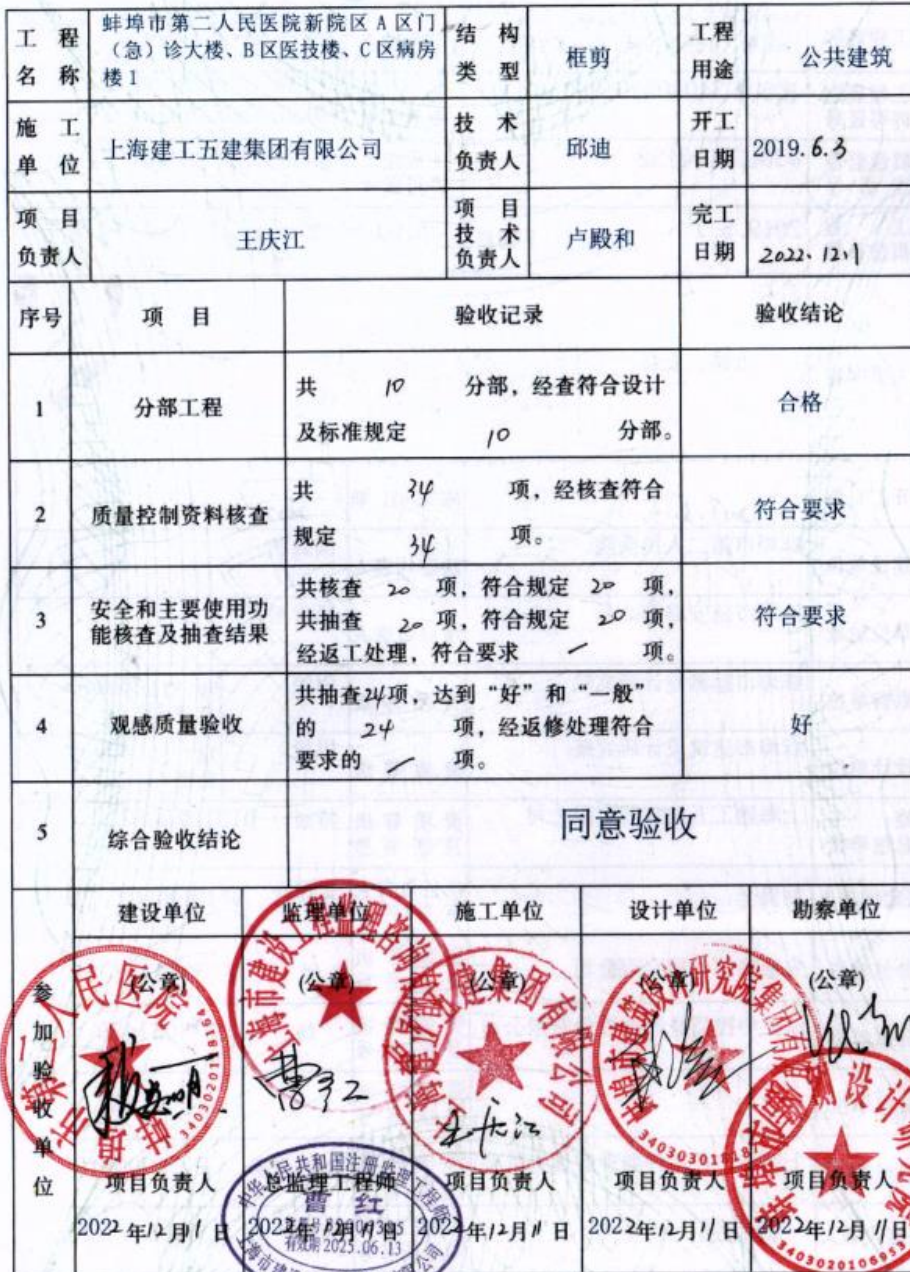 工程名称 蚌埠市第二人民医院新院区A区门（急）诊大楼、B区医技楼、C区病房楼1 结构类型 框剪 工程用途 公共建筑
施工单位 上海建工五建集团有限公司 技术负责人 邱迪 开工日期 2019.6.3
项目负责人 王庆江 项目技术负责人 卢殿和 完工日期 2022.12.1
序号 项目 验收记录 验收结论
1 分部工程 共 10 分部，经查符合设计
及标准规定 10 分部。 合格
2 质量控制资料核查 共 34 项，经核查符合
规定 34 项。 符合要求
3 安全和主要使用功能核查及抽查结果 共核查 20 项，符合规定 20 项，
共抽查 20 项，符合规定 20 项，
经返工处理，符合要求 — 项。 符合要求
4 观感质量验收 共抽查24项，达到“好”和“一般”
的 24 项，经返修处理符合
要求的 — 项。 好
5 综合验收结论 同意验收
参加验收单位
建设单位 监理单位 施工单位 设计单位 勘察单位
(公章) (公章) (公章) (公章) (公章)
曹红 王庆江
项目负责人 总监理工程师 项目负责人 项目负责人 项目负责人
2022年12月11日 2022年12月11日 2022年12月11日 2022年12月11日 2022年12月11日
中华人民共和国注册监理工程师
曹红
有效期 2025.06.13
3403020106953